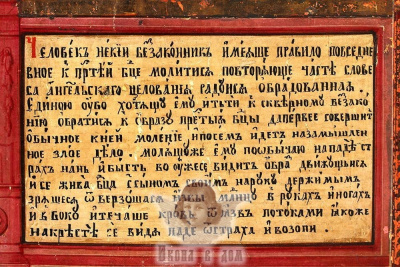 Человекъ некїи беззаконникъ имѣяше правило повседне
вное к прт҃ей бц҃е молитисѧ повторяюще часте слове
са ангельскаго целованїѧ радуисѧ обрадованнаѧ.
Единою оубо хотѧщу ему итьти к скверному беззако
нїю обратисѧ к образу прт҃ыѧ бц҃ы да первее совершит
обычное к ней моленїе и посемъ идетъ на замышлен
ное злое дело молѧщуже ему по обычаю нападе ст
рахъ нань и бысть во ужесе видитъ обра движущисѧ
и се жива бц҃а с сыномъ своимъ на руку держимымъ
зрѧшесѧ ѿверзошасѧ ѧзвы младенцу в рукахъ и ногахъ
и в боку и течаше кровь ѿ ѧзвъ потоками ꙗкоже
на кресте се видѧ паде ѿ страха и возопи.
Икона в дом